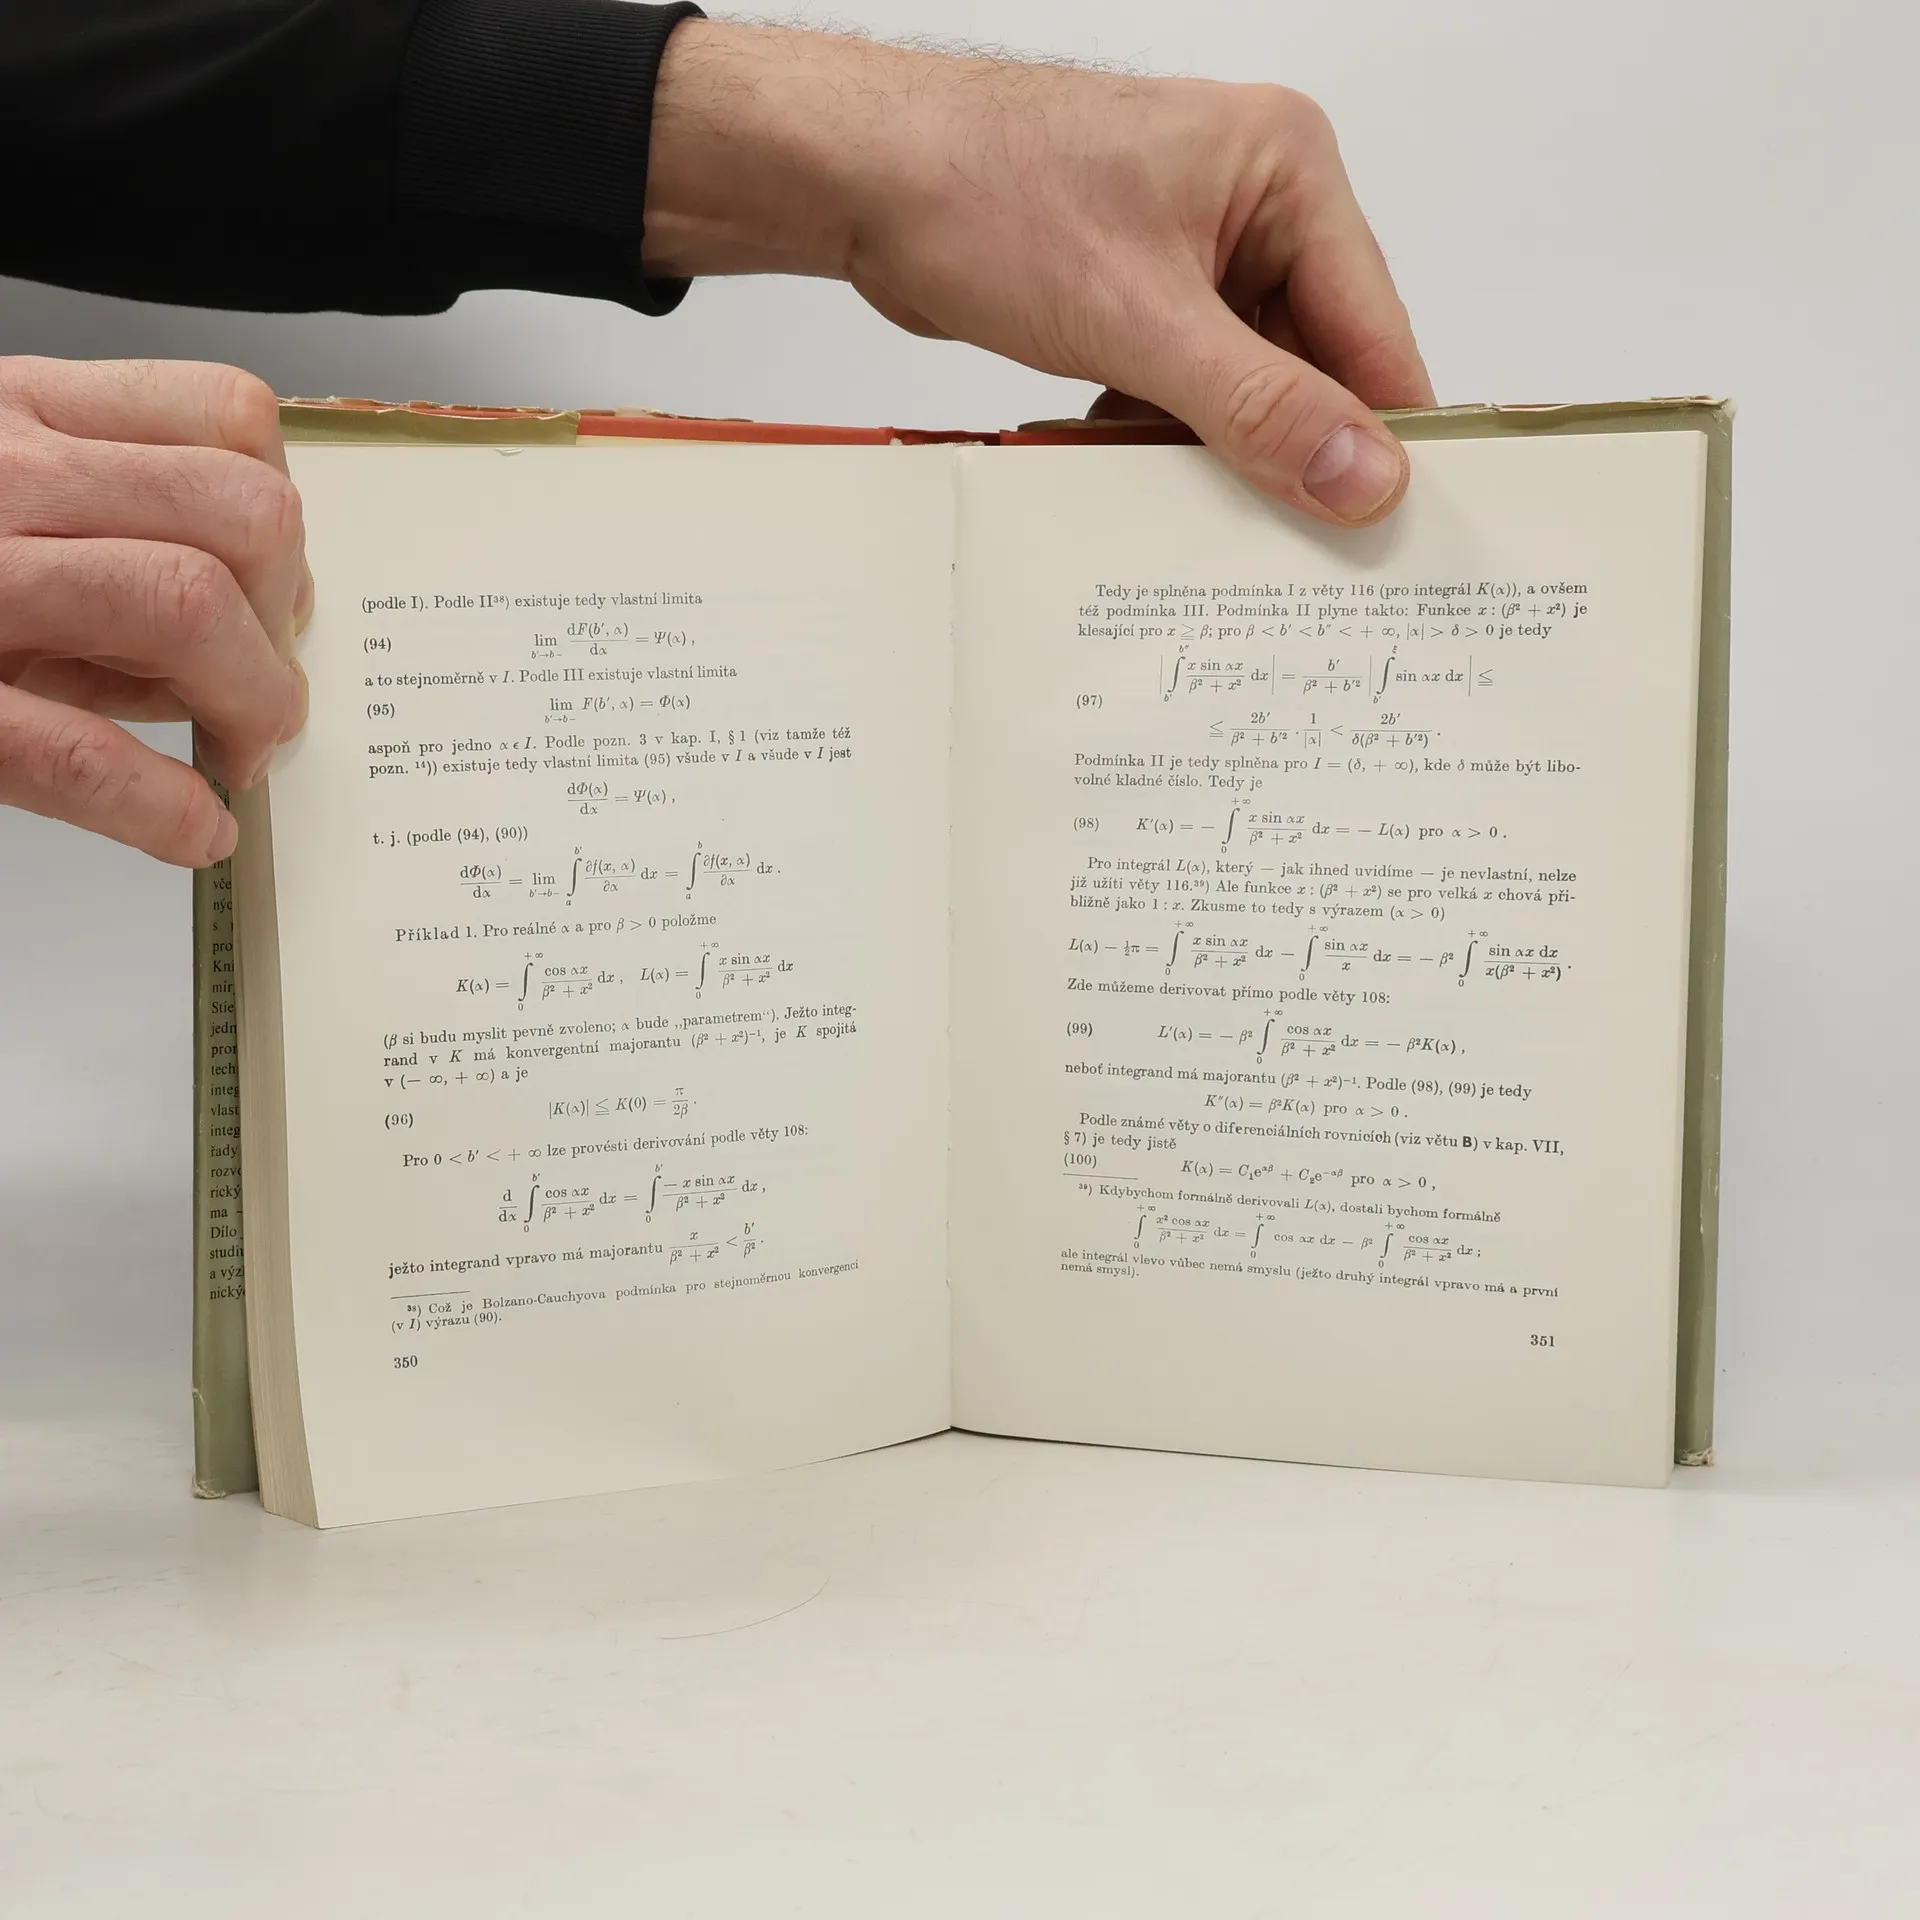 vče
s
pro
Kni
Stie
jedn
pron
tech
integ
vlast
integ
řady
rozvo
rický
ma –
Dílo
studi
a výz
nický
(podle I). Podle II³⁸) existuje tedy vlastní limita
(94) lim_{b′→b−} dF(b′, α)/dα = Ψ(α) ,
a to stejnoměrně v I. Podle III existuje vlastní limita
(95) lim_{b′→b−} F(b′, α) = Φ(α)
aspoň pro jedno α ϵ I. Podle pozn. 3 v kap. I, § 1 (viz tamže též
pozn. ¹⁴)) existuje tedy vlastní limita (95) všude v I a všude v I jest
dΦ(α)/dα = Ψ(α) ,
t. j. (podle (94), (90))
dΦ(α)/dα = lim_{b′→b−} ∫_a^{b′} ∂f(x, α)/∂α dx = ∫_a^b ∂f(x, α)/∂α dx .
Příklad 1. Pro reálné α a pro β > 0 položme
K(α) = ∫_0^{+∞} cos αx/(β² + x²) dx , L(α) = ∫_0^{+∞} x sin αx/(β² + x²) dx
(β si budu myslit pevně zvoleno; α bude „parametrem“). Ježto integ-
rand v K má konvergentní majorantu (β² + x²)⁻¹, je K spojitá
v (− ∞, + ∞) a je
(96) |K(α)| ≦ K(0) = π/2β .
Pro 0 < b′ < + ∞ lze provésti derivování podle věty 108:
d/dα ∫_0^{b′} cos αx/(β² + x²) dx = ∫_0^{b′} − x sin αx/(β² + x²) dx ,
ježto integrand vpravo má majorantu x/(β² + x²) < b′/β² .
³⁸) Což je Bolzano-Cauchyova podmínka pro stejnoměrnou konvergenci
(v I) výrazu (90).
350
Tedy je splněna podmínka I z věty 116 (pro integrál K(α)), a ovšem
též podmínka III. Podmínka II plyne takto: Funkce x : (β² + x²) je
klesající pro x ≧ β; pro β < b′ < b″ < + ∞, |α| > δ > 0 je tedy
|∫_{b′}^{b″} x sin αx/(β² + x²) dx| = b′/(β² + b′²) |∫_{b′}^{ξ} sin αx dx| ≦
(97)
≦ 2b′/(β² + b′²) · 1/|α| < 2b′/δ(β² + b′²) .
Podmínka II je tedy splněna pro I = (δ, + ∞), kde δ může být libo-
volné kladné číslo. Tedy je
(98) K′(α) = − ∫_0^{+∞} x sin αx/(β² + x²) dx = − L(α) pro α > 0 .
Pro integrál L(α), který — jak ihned uvidíme — je nevlastní, nelze
již užíti věty 116.³⁹) Ale funkce x : (β² + x²) se pro velká x chová při-
bližně jako 1 : x. Zkusme to tedy s výrazem (α > 0)
L(α) − ½π = ∫_0^{+∞} x sin αx/(β² + x²) dx − ∫_0^{+∞} sin αx/x dx = − β² ∫_0^{+∞} sin αx dx/x(β² + x²) .
Zde můžeme derivovat přímo podle věty 108:
(99) L′(α) = − β² ∫_0^{+∞} cos αx/(β² + x²) dx = − β²K(α) ,
neboť integrand má majorantu (β² + x²)⁻¹. Podle (98), (99) je tedy
K″(α) = β²K(α) pro α > 0 .
Podle známé věty o diferenciálních rovnicích (viz větu B) v kap. VII,
§ 7) je tedy jistě
(100) K(α) = C₁e^{αβ} + C₂e^{−αβ} pro α > 0 ,
³⁹) Kdybychom formálně derivovali L(α), dostali bychom formálně
∫_0^{+∞} x² cos αx/(β² + x²) dx = ∫_0^{+∞} cos αx dx − β² ∫_0^{+∞} cos αx/(β² + x²) dx ;
ale integrál vlevo vůbec nemá smyslu (ježto druhý integrál vpravo má a první
nemá smysl).
351